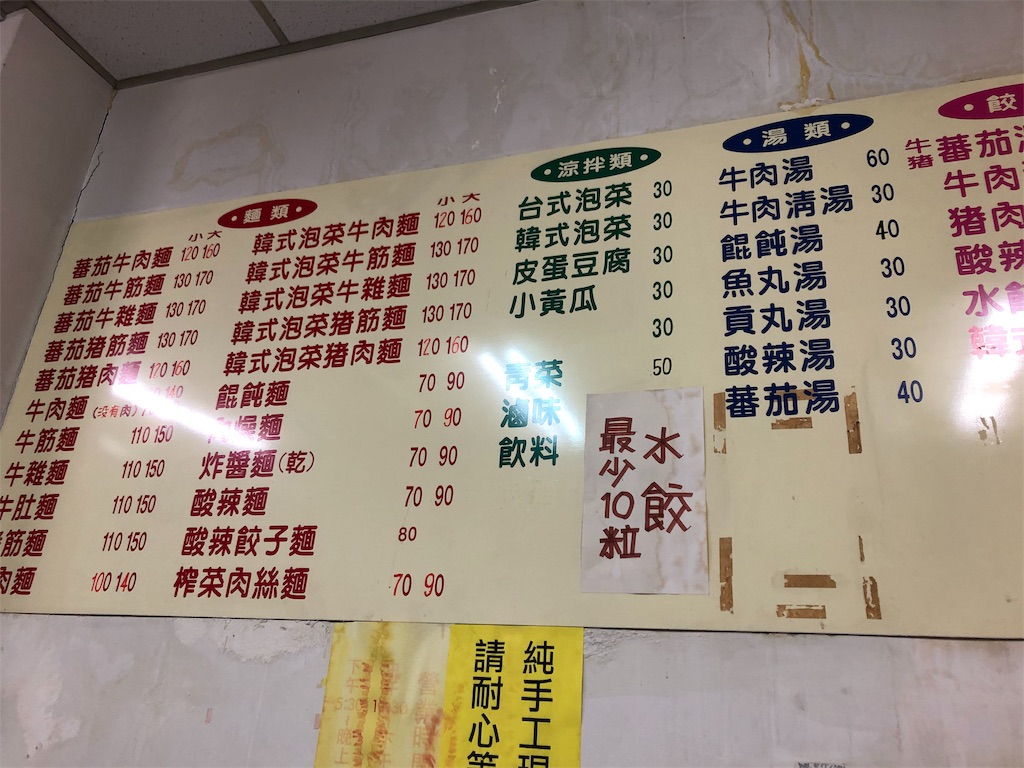 麵類
小 大
蕃茄牛肉麵 120 160
蕃茄牛筋麵 130 170
蕃茄牛雜麵 130 170
蕃茄猪筋麵 130 170
蕃茄猪肉麵 120 160
牛肉麵(沒有肉)
牛筋麵 110 150
牛雜麵 110 150
牛肚麵 110 150
筋麵 110 150
肉麵 100 140
小 大
韓式泡菜牛肉麵 120 160
韓式泡菜牛筋麵 130 170
韓式泡菜牛雜麵 130 170
韓式泡菜猪筋麵 130 170
韓式泡菜猪肉麵 120 160
餛飩麵 70 90
麵 70 90
炸醬麵(乾) 70 90
酸辣麵 70 90
酸辣餃子麵 80
榨菜肉絲麵 70 90
涼拌類
台式泡菜 30
韓式泡菜 30
皮蛋豆腐 30
小黃瓜 30
30
青菜 50
滷味
飲料
湯類
牛肉湯 60
牛肉清湯 30
餛飩湯 40
魚丸湯 30
貢丸湯 30
酸辣湯 30
蕃茄湯 40
餃
牛猪蕃茄
牛肉
猪肉
酸辣
水餃
水餃
最少10粒
純手工現
請耐心等